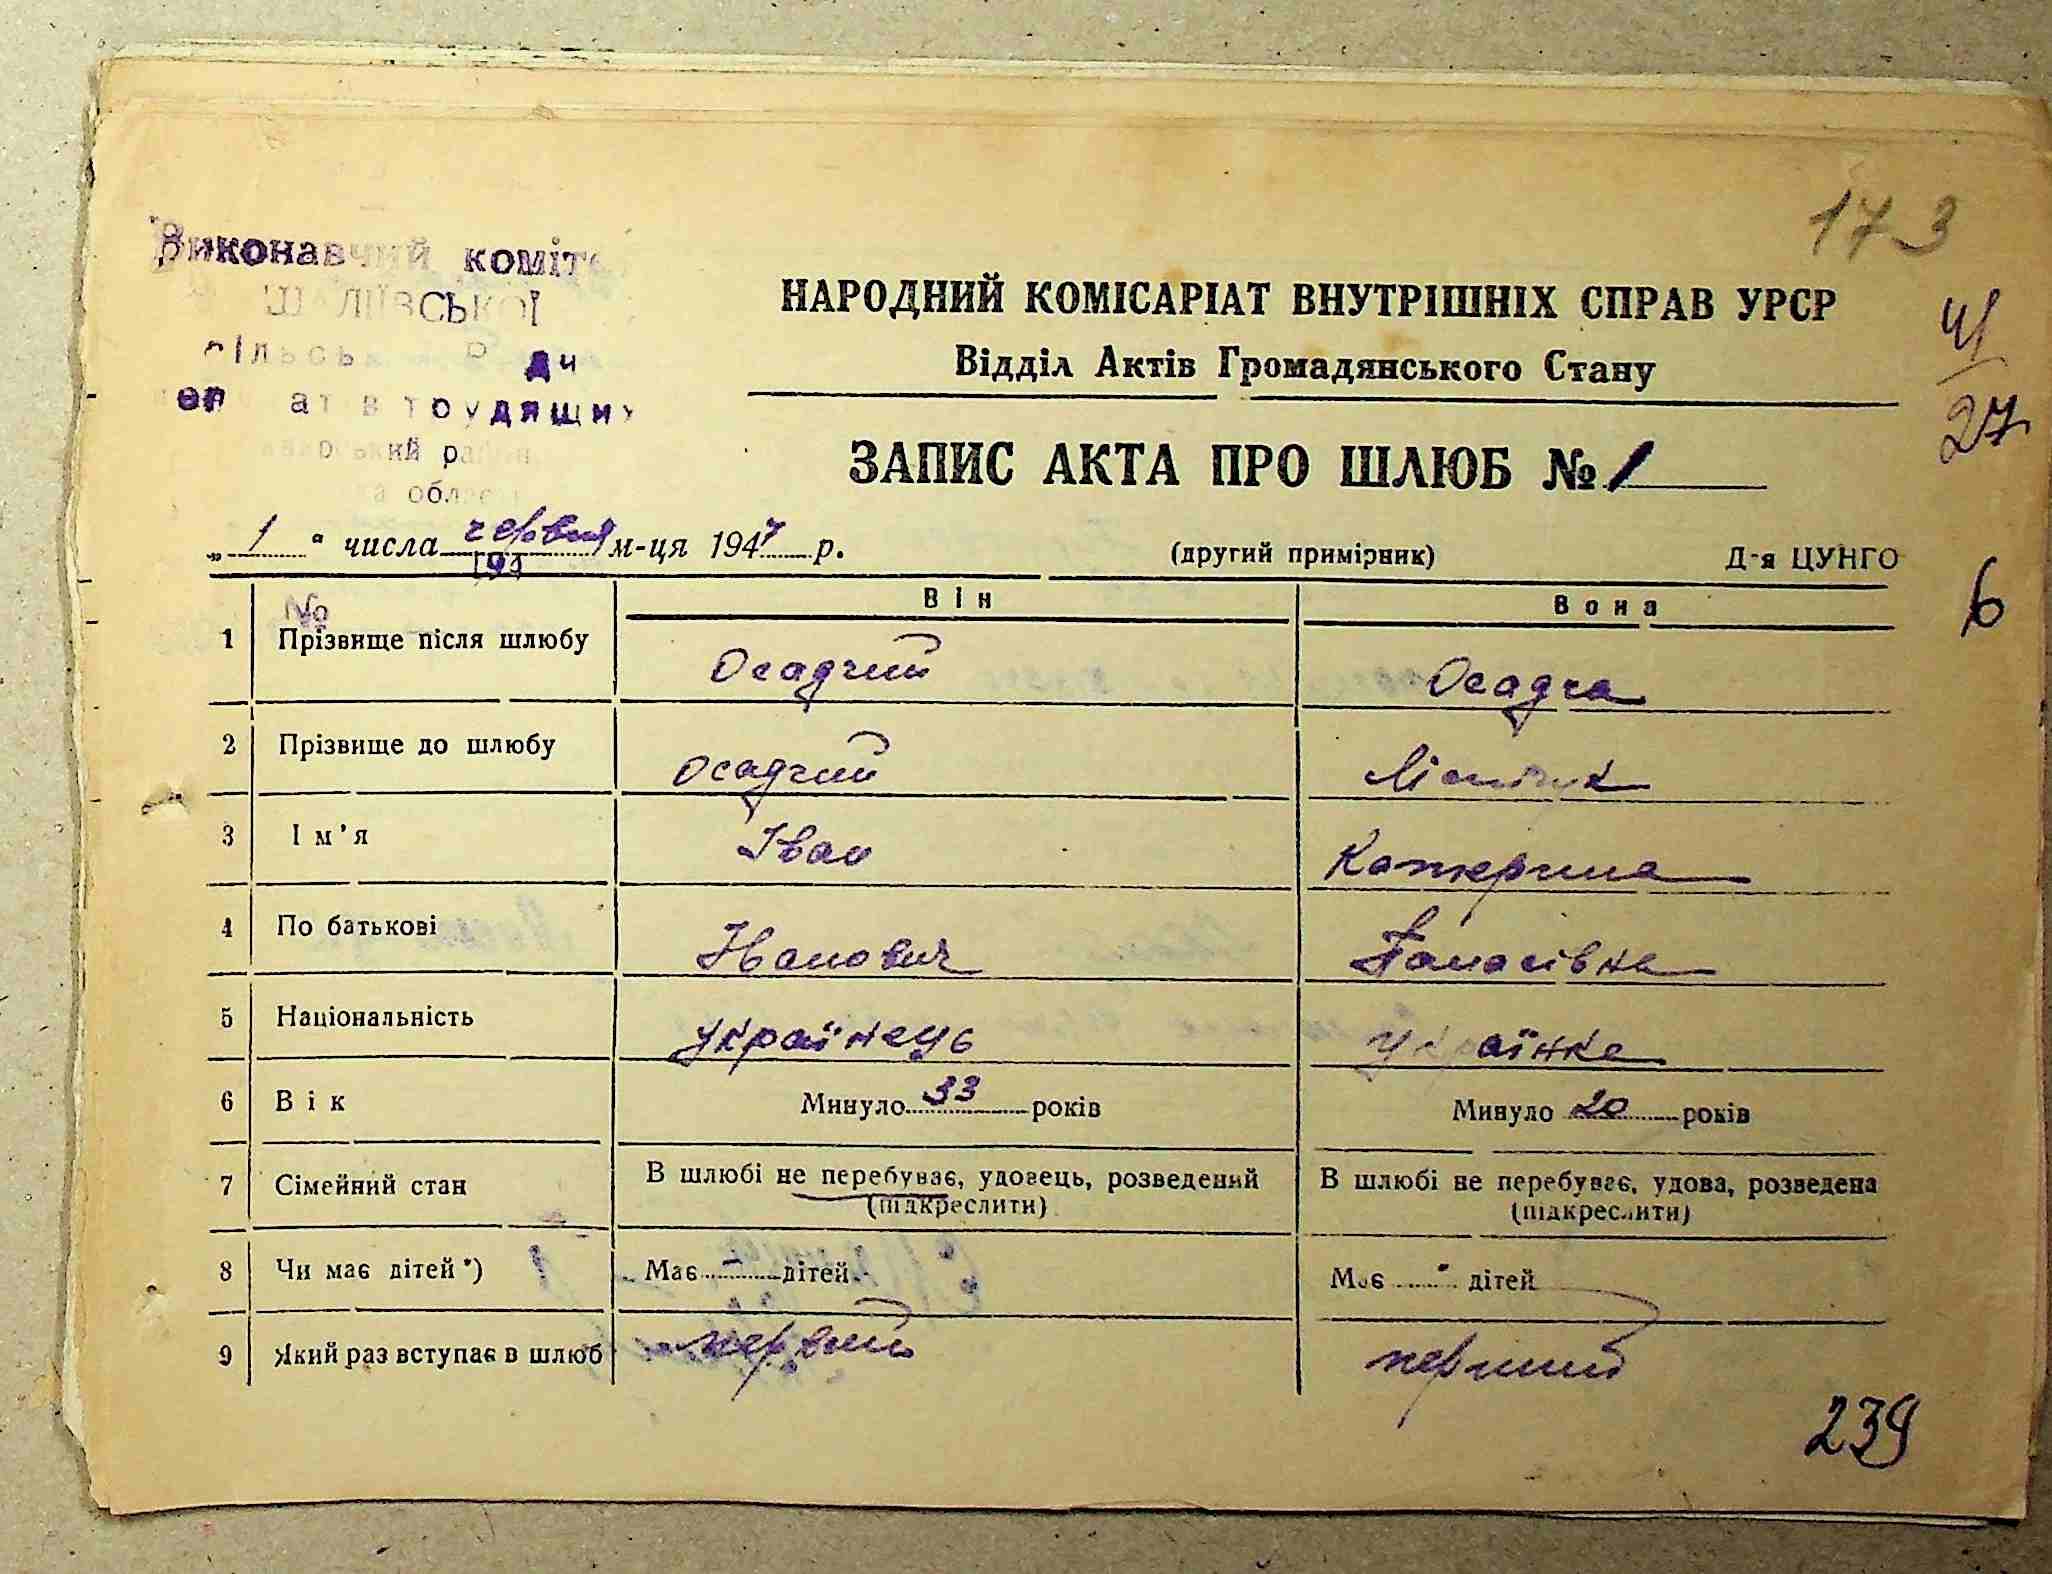 173
Виконавчий коміт
НАРОДНИЙ КОМІСАРІАТ ВНУТРІШНІХ СПРАВ УРСР
Відділ Актів Громадянського Стану
27
трудящих
ЗАПИС АКТА ПРО ШЛЮБ № 1
„ 1 " числа червня м-ця 1947 р. (другий примірник) Д-я ЦУНГО
194
6
№ Він Вона
1 Прізвище після шлюбу Осадчий Осадча
2 Прізвище до шлюбу Осадчий
3 Ім'я Іван Катерина
4 По батькові Іванович Панасівна
5 Національність українець українка
6 Вік Минуло 33 років Минуло 20 років
7 Сімейний стан В шлюбі не перебуває, удовець, розведений В шлюбі не перебуває, удова, розведена
(підкреслити) (підкреслити)
8 Чи має дітей *) Має - дітей Має - дітей
9 Який раз вступає в шлюб первый перший
239